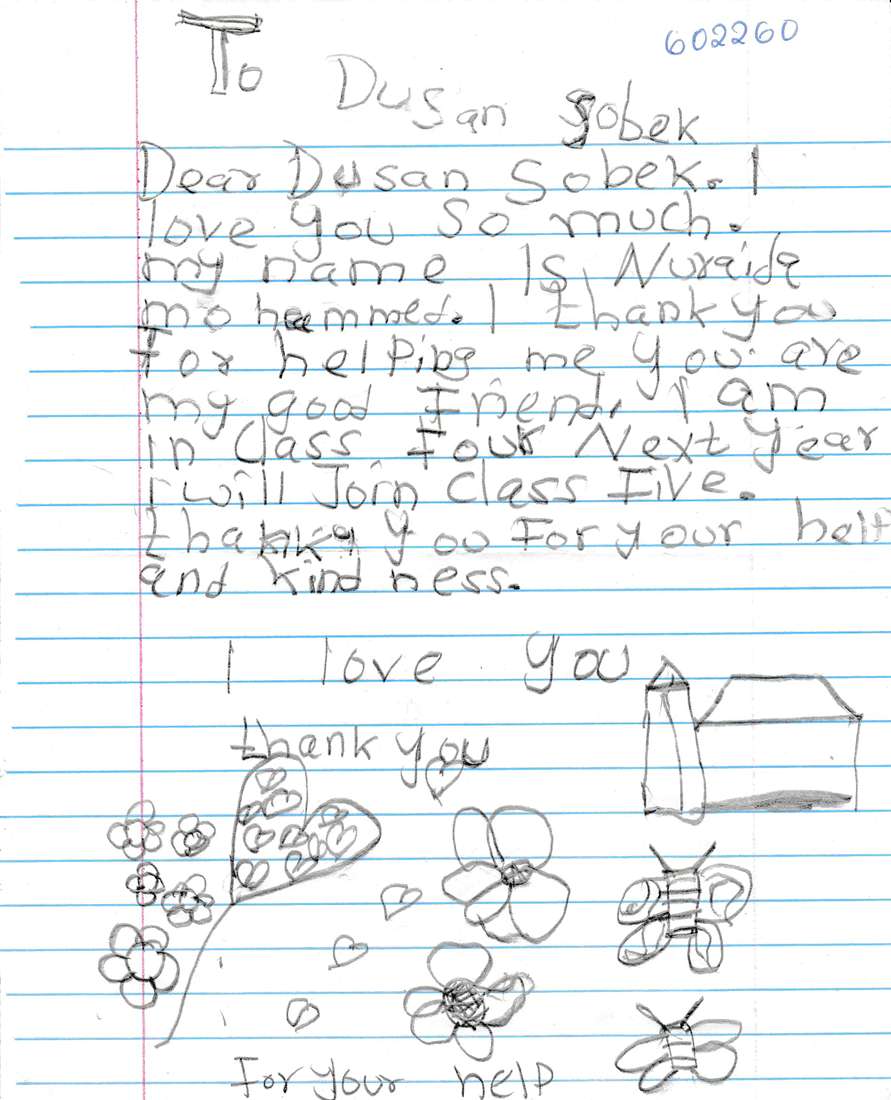 602260
To
Dusan Sobek
Dear Dusan Sobek. I
love you so much.
my name Is Nuraida
mohammed. I thank you
for helping me you are
my good Friend. I am
in Class Four Next year
I will Join Class Five.
thank you For your help
and kindness.
I love you
thank you
For your help